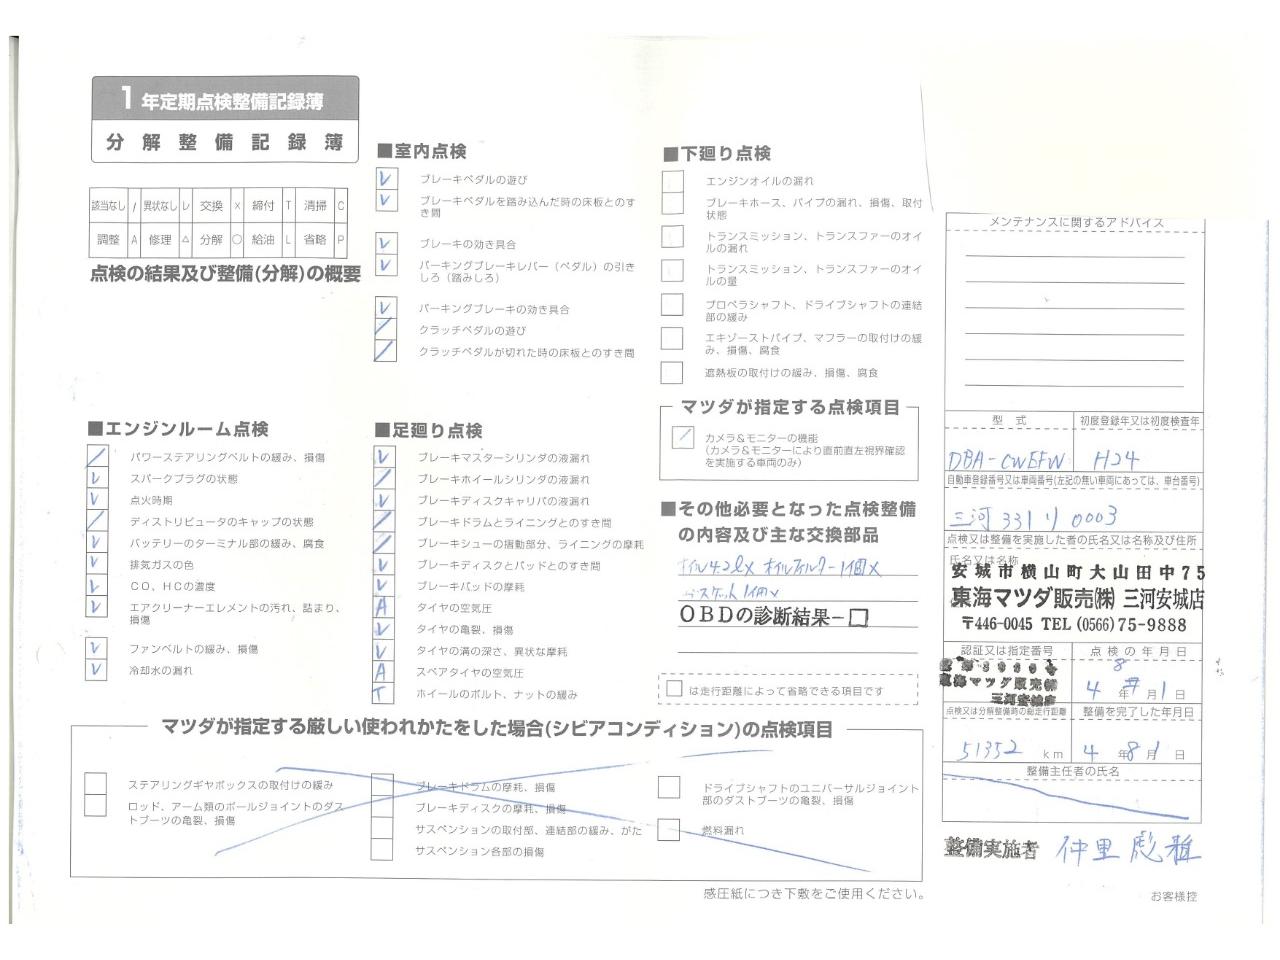 1年定期点検整備記録簿
分解整備記録簿
該当なし / 異状なし レ 交換 × 締付 T 清掃 C
調整 A 修理 △ 分解 ○ 給油 L 省略 P
点検の結果及び整備(分解)の概要
■エンジンルーム点検
/ パワーステアリングベルトの緩み、損傷
レ スパークプラグの状態
レ 点火時期
/ ディストリビュータのキャップの状態
レ バッテリーのターミナル部の緩み、腐食
レ 排気ガスの色
レ CO、HCの濃度
レ エアクリーナーエレメントの汚れ、詰まり、
損傷
レ ファンベルトの緩み、損傷
レ 冷却水の漏れ
■室内点検
レ ブレーキペダルの遊び
レ ブレーキペダルを踏み込んだ時の床板とのす
き間
レ ブレーキの効き具合
レ パーキングブレーキレバー（ペダル）の引き
しろ（踏みしろ）
レ パーキングブレーキの効き具合
/ クラッチペダルの遊び
/ クラッチペダルが切れた時の床板とのすき間
■足廻り点検
レ ブレーキマスターシリンダの液漏れ
/ ブレーキホイールシリンダの液漏れ
レ ブレーキディスクキャリパの液漏れ
/ ブレーキドラムとライニングとのすき間
/ ブレーキシューの摺動部分、ライニングの摩耗
レ ブレーキディスクとパッドとのすき間
レ ブレーキパッドの摩耗
A タイヤの空気圧
レ タイヤの亀裂、損傷
レ タイヤの溝の深さ、異状な摩耗
A スペアタイヤの空気圧
T ホイールのボルト、ナットの緩み
■下廻り点検
エンジンオイルの漏れ
ブレーキホース、パイプの漏れ、損傷、取付
状態
トランスミッション、トランスファーのオイ
ルの漏れ
トランスミッション、トランスファーのオイ
ルの量
プロペラシャフト、ドライブシャフトの連結
部の緩み
エキゾーストパイプ、マフラーの取付けの緩
み、損傷、腐食
遮熱板の取付けの緩み、損傷、腐食
マツダが指定する点検項目
/ カメラ＆モニターの機能
(カメラ＆モニターにより直前直左視界確認
を実施する車両のみ)
■その他必要となった点検整備
の内容及び主な交換部品
オイル4.2ℓx オイルフィルター1個x
ガスケット1個x
OBDの診断結果−□
は走行距離によって省略できる項目です
マツダが指定する厳しい使われかたをした場合(シビアコンディション)の点検項目
ステアリングギヤボックスの取付けの緩み
ロッド、アーム類のボールジョイントのダス
トブーツの亀裂、損傷
ブレーキドラムの摩耗、損傷
ブレーキディスクの摩耗、損傷
サスペンションの取付部、連結部の緩み、がた
サスペンション各部の損傷
ドライブシャフトのユニバーサルジョイント
部のダストブーツの亀裂、損傷
燃料漏れ
感圧紙につき下敷をご使用ください。
メンテナンスに関するアドバイス
型式 初度登録年又は初度検査年
DBA-CWEFW H24
自動車登録番号又は車両番号(左記の無い車両にあっては、車台番号)
三河 331 り 0003
点検又は整備を実施した者の氏名又は名称及び住所
氏名又は名称
安城市横山町大山田中75
東海マツダ販売㈱ 三河安城店
〒446-0045 TEL (0566) 75-9888
認証又は指定番号 点検の年月日
東海マツダ販売㈱
三河安城店
4年8月1日
点検又は分解整備時の総走行距離 整備を完了した年月日
51352 km 4年8月1日
整備主任者の氏名
整備実施者 仲里 彪雅
お客様控